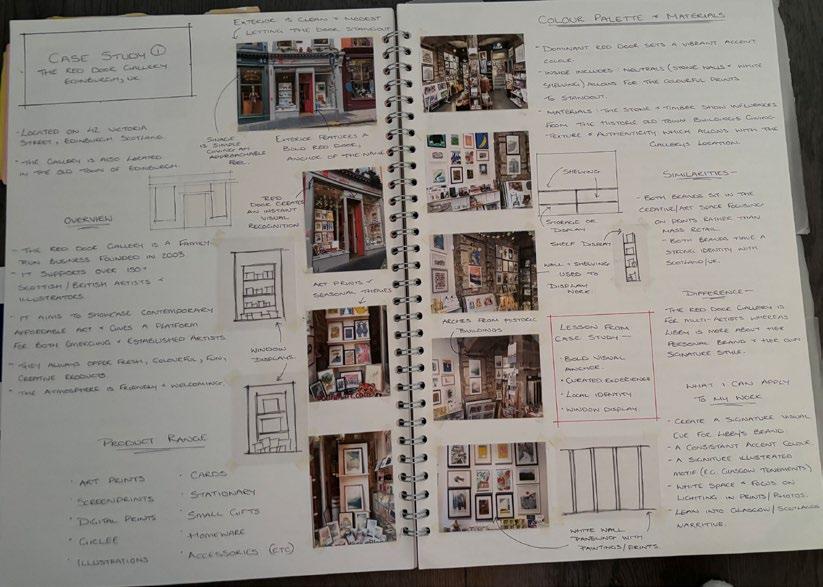 CASE STUDY ①
THE RED DOOR GALLERY
EDINBURGH, UK.
EXTERIOR IS CLEAN + MODEST
LETTING THE DOOR STANDOUT
- LOCATED ON 42 VICTORIA
STREET, EDINBURGH SCOTLAND.
- THE GALLERY IS ALSO LOCATED
IN THE OLD TOWN OF EDINBURGH.
SINAGE
IS SIMPLE
GIVING AN
APPROACHABLE
FEEL.
EXTERIOR FEATURES A
BOLD RED DOOR,
ANCHOR OF THE NAME
RED
DOOR CREATES
AN INSTANT
VISUAL
RECOGNITION
OVERVIEW
- THE RED DOOR GALLERY IS A FAMILY
RUN BUSINESS FOUNDED IN 2003
- IT SUPPORTS OVER 150+
SCOTTISH/BRITISH ARTISTS +
ILLUSTRATORS.
- IT AIMS TO SHOWCASE CONTEMPORARY
AFFORDABLE ART + GIVES A PLATFORM
FOR BOTH EMERGING + ESTABLISHED ARTISTS.
- THEY ALWAYS OFFER FRESH, COLOURFUL, FUN,
CREATIVE PRODUCTS.
- THE ATMOSPHERE IS FRIENDLY + WELCOMING.
ART PRINTS +
SEASONAL THEMES
WINDOW
DISPLAYS.
PRODUCT RANGE
· ART PRINTS
· SCREENPRINTS
· DIGITAL PRINTS
· GICLEE
· ILLUSTRATIONS
· CARDS
· STATIONARY
· SMALL GIFTS
· HOMEWARE
· ACCESSORIES (ETC)
COLOUR PALETTE + MATERIALS
- DOMINANT RED DOOR SETS A VIBRANT ACCENT
COLOUR.
- INSIDE INCLUDES: NEUTRALS (STONE WALLS + WHITE
SHELVING) ALLOWS FOR THE COLOURFUL PRINTS
TO STANDOUT.
- MATERIALS - THE STONE + TIMBER SHOW INFLUENCES
FROM THE HISTORIC OLD TOWN BUILDINGS GIVING
TEXTURE + AUTHENTICITY WHICH ALIGNS WITH THE
GALLERYS LOCATION.
SHELVING
STORAGE OR
DISPLAY
SHELF DISPLAY
WALL + SHELVING
USED TO
DISPLAY
WORK.
SIMILARITIES -
- BOTH BRANDS SIT IN THE
CREATIVE/ART SPACE FOCUSING
ON PRINTS RATHER THAN
MASS RETAIL.
- BOTH BRANDS HAVE A
STRONG IDENTITY WITH
SCOTLAND/UK.
ARCHES FROM HISTORIC
BUILDINGS
LESSON FROM
CASE STUDY -
· BOLD VISUAL
ANCHOR.
· CURATED EXPERIENCE
· LOCAL IDENTITY
· WINDOW DISPLAY
DIFFERENCE -
- THE RED DOOR GALLERY IS
FOR MULTI-ARTISTS WHEREAS
LIBBY IS MORE ABOUT HER
PERSONAL BRAND + HER OWN
SIGNATURE STYLE.
WHAT I CAN APPLY
TO MY WORK
- CREATE A SIGNATURE VISUAL
CUE FOR LIBBY'S BRAND.
- A CONSISTANT ACCENT COLOUR.
- A SIGNITURE ILLUSTRATED
MOTIF (E.G. GLASGOW TENEMENTS)
- WHITE SPACE + FOCUS ON
LIGHTING IN PRINTS/PHOTOS.
- LEAN INTO GLASGOW/SCOTLANDS
NARRITIVE.
WHITE WALL
PANELING WITH
PAINTINGS/PRINTS.